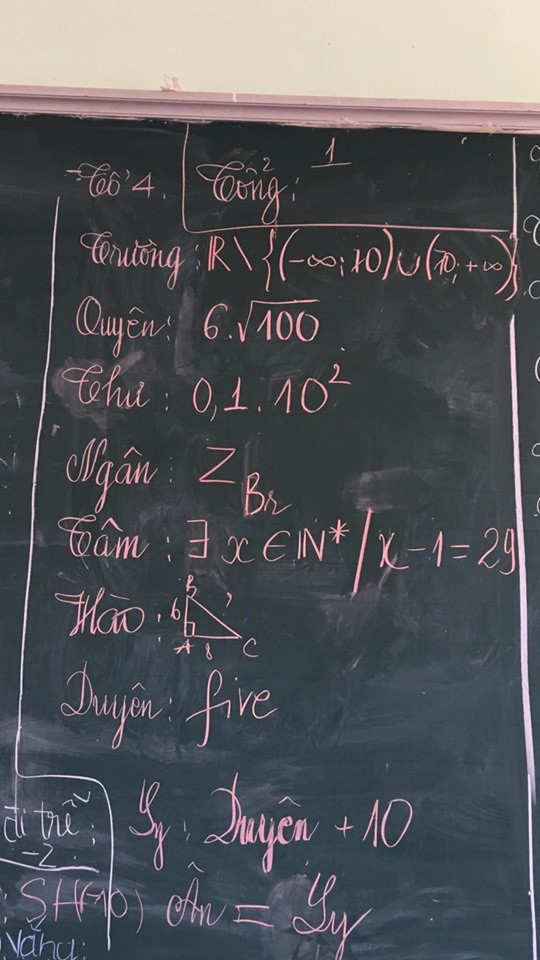 Tổ 4.
Tổng: 1
Trường: ℝ\{(-∞; 10)∪(10; +∞)}
Quyên: 6.√100
Thư: 0,1.10²
Ngân: Z_Br
Tâm: ∃ x ∈ ℕ* / x - 1 = 29
Hào: B 6 ? A 8 C
Duyên: five
đi trễ:
-2
Ly: Duyên + 10
SH(-10)
Ân = Ly
vắng: